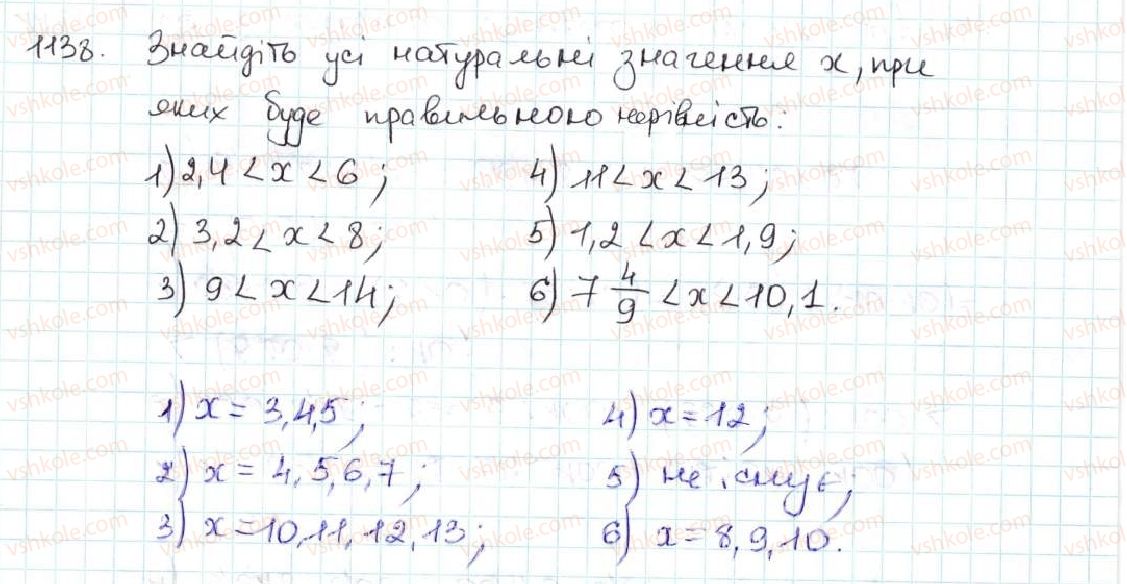 1138. Знайдіть усі натуральні значення x, при
яких буде правильною нерівність:
1) 2,4 < x < 6; 4) 11 < x < 13;
2) 3,2 < x < 8; 5) 1,2 < x < 1,9;
3) 9 < x < 14; 6) 7 4/9 < x < 10,1.
1) x = 3,4,5; 4) x = 12;
2) x = 4,5,6,7; 5) не існує;
3) x = 10,11,12,13; 6) x = 8,9,10.